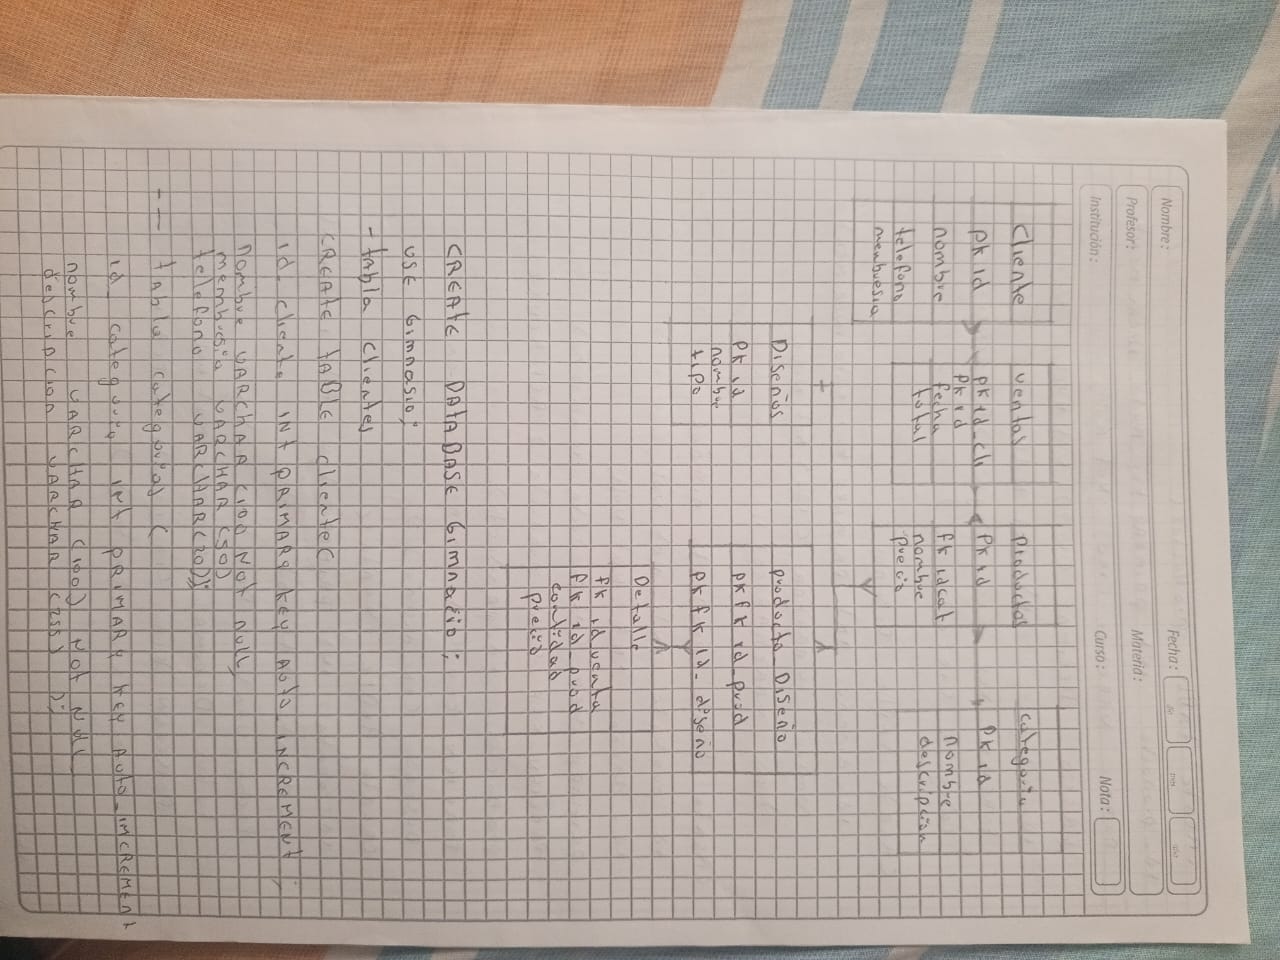 Nombre:
Fecha:
día
mes
año
Profesor:
Materia:
Institución:
Curso:
Nota:
Cliente
PK id
nombre
telefono
membresia
ventas
pk id_cli
PK id
fecha
total
productos
PK id
fk idcat
nombre
precio
categoria
PK id
nombre
descripcion
Diseños
PK id
nombre
tipo
producto_Diseño
PK fk id_prod
PK fk id_diseño
Detalle
fk id venta
PK id_prod
cantidad
precio
CREATE DATABASE Gimnacio;
USE Gimnasio;
- tabla clientes
CREATE TABLE cliente(
id_cliente INT PRIMARY KEY AUTO_INCREMENT,
nombre VARCHAR (100 Not null,
membresia VARCHAR (50)
telefono VARCHAR(20));
-- tabla categorias (
id_categoria int PRIMARY KEY AUTO_INCREMENT
nombre VARCHAR (100) NOT NULL
descripcion VARCHAR (255) );